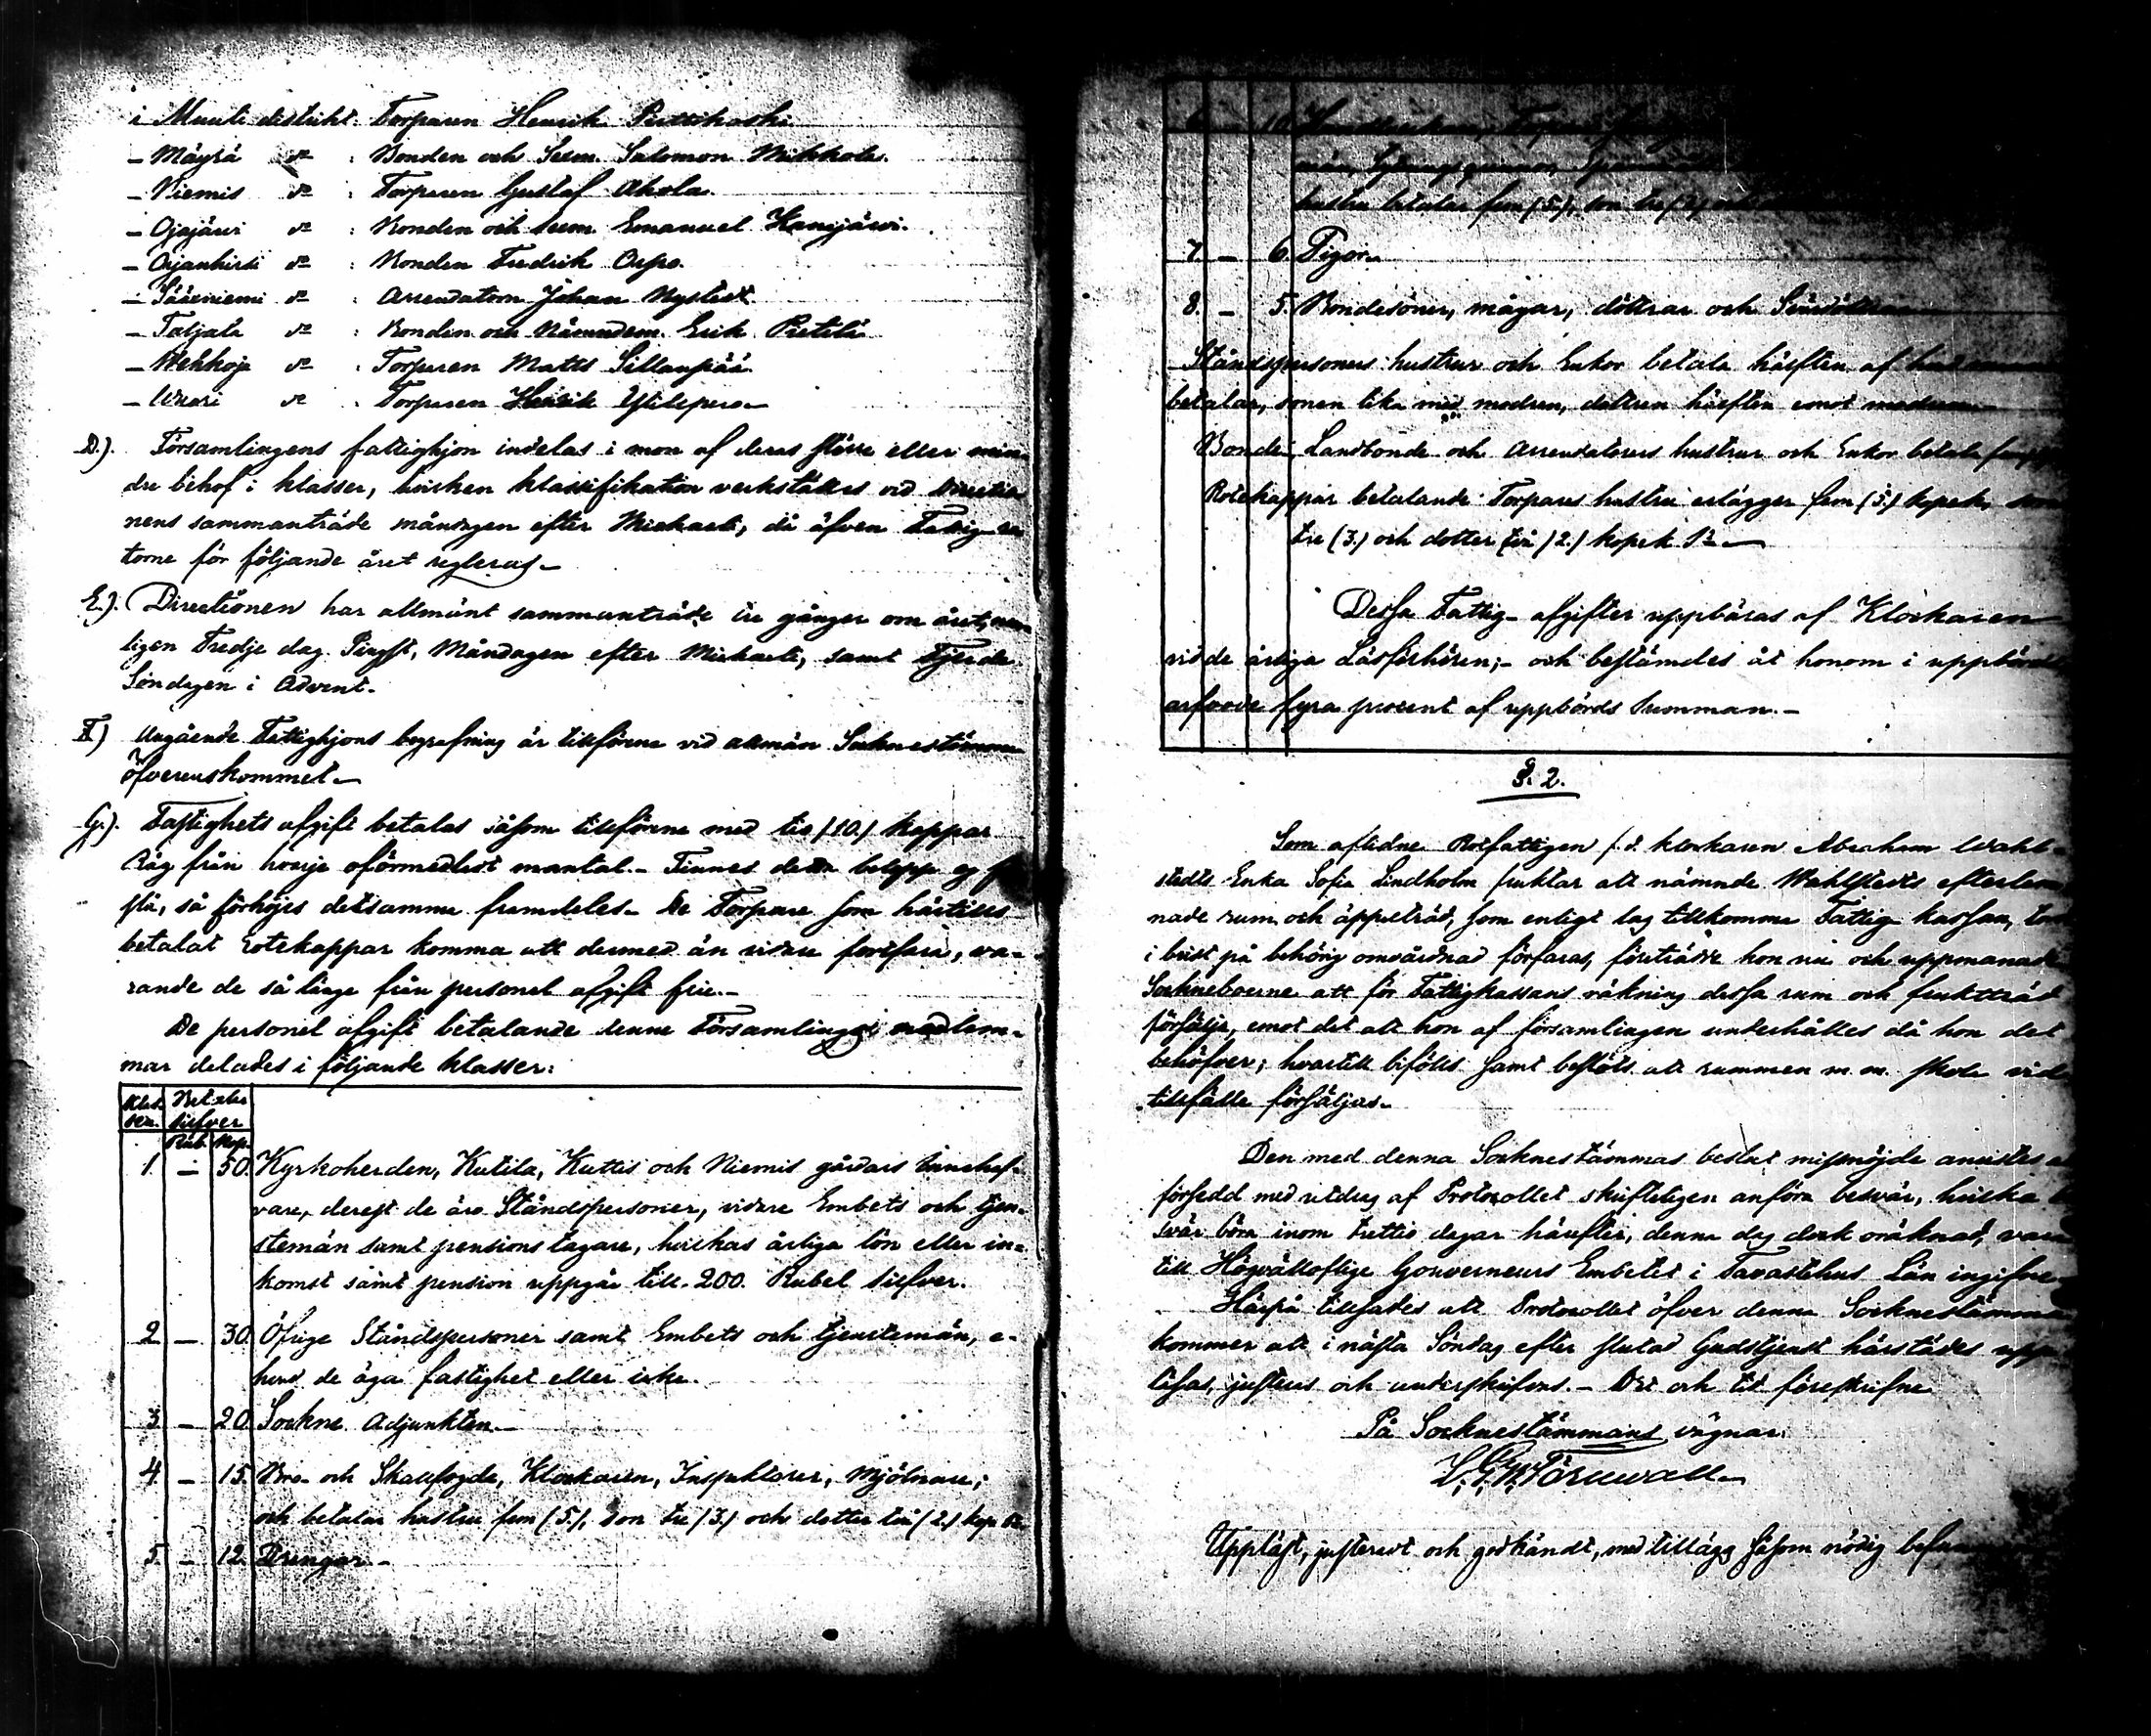 i Muuli distrikt: Torparen Henrik Perttikoski.
— Mäyrä do : Bonden och Sexm. Salomon Mikkola.
— Niemis do : Torparen Gustaf Ahola.
— Ojajärvi do : Bonden och Sexm Emanuel Kangjärvi.
— Orjanhirsi do : Bonden Fredrik Orpo.
— Sääxniemi do : Arrendatorn Johan Nystedt
— Taljala do : Bonden och Nämndem. Erik Pietilä
— Wehkoja do : Torparen Matts Sillanpää
— do : Torparen Henrik Ylilepero—
D.). Församlingens fattighjon indelas i mon af deras större eller min-
dre behof i klasser, hvilken klassifikation verkställes vid Directio
nens sammanträde måndagen efter Michaeli, då äfven Fattig
torne för följande året regleras.—
E.). Directionen har allmänt sammanträde tre gånger om året, nem-
ligen Tredje dag Pingst, Måndagen efter Michaeli, samt Fjerde
Söndagen i Advent.
F.) Angående Fattighjons begrafning är tillförne vid allmän Socknestämma
öfverenskommet.—
G.). Fastighets afgift betalas såsom tillförene med tio (10.) kappar
Råg från hvarje oförmedladt mantal.— Finnes detta belopp ej
slå, så förhöjes detsamma framdeles.— De Torpare som härtills
betalat rotekappar komma att dermed än vidare fortfara, va-
rande de så länge från personel afgift frie.—
De personel afgift betalande denne Församlings medlem-
mar delades i följande klasser:
Klas- Betalar
ser. silfver
Rub. Kop.
1. — 50. Kyrkoherden, Kutila, Kuttis och Niemis gårdars innehaf-
vare, derest de äro Ståndspersoner, vidare Embets och tjen-
stemän samt pensionstagare, hvilkas årliga lön eller in-
komst samt pension uppgår till 200. Rubel silfver.
2 — 30. Öfrige Ståndspersoner samt Embets och tjenstemän, e-
hvad de äga fastighet eller icke.
3 — 20. Sockne Adjunkten.—
4 — 15. Bro- och Skallfogde, Klockaren, Inspektorer, Mjölnare;
och betalar hustru fem (5.), Son tre (3.) och dotter två (2.) kop Sr.
5. — 12. Drengar.—
10. Torpare
hustru betalar fem (5.), son tre (3.)
7. — 6. Pigor.
8. — 5. Bondesöner, mågar, döttrar och Sonedöttrar
Ståndspersoners hustrur och Enkor betala hälften af hvad mannen
betalar, sonen lika med modren, dottren hälften emot modren—
Bonde- Landbonde och Arrendatorers hustrur och Enkor betala
Rotekappar betalande Torpares hustru erlägger fem (5.) kopek, son
tre (3.) och dotter två (2.) kopek Sr.—
Dessa Fattig-afgifter uppbäras af Klockaren
vid de årliga Läsförhören;— och bestämdes åt honom i uppbörds
arfvode fyra procent af uppbörds Summan.—
§. 2.
Som aflidne Rotfattigen f.d. klockaren Abraham Wahl-
stedts Enka Sofia Lindholm fruktar att nämnde Wahlstedts efterlem
nade rum och äppelträd, som enligt lag tillkomma Fattig kassan,
i brist på behörig omvårdnad förfaras, företrädde hon nu och uppmanade
Sockneboerne att för Fattigkassans räkning dessa rum och fruktträd
försälja, emot det att hon af församlingen underhålles då hon det
behöfver; hvartill biföllts samt beslöts att rummen m.m. skola vid
tillfälle försäljas.—
Den med denna Socknestämmas beslut missnöjde anvistes att
försedd med utdrag af Protocollet skriftligen anföra besvär, hvilka be-
svär böra inom trettio dagar härefter, denna dag dock oräknad, vara
till Högvällofliga Gouverneurs Embetet i Tavastehus Län ingifne.
Härpå tillsades att Protocollet öfver denna Socknestämma
kommer att i nästa Söndag efter slutad Gudstjenst härstädes upp-
läsas, justeras och underskrifvas.— Dat och tid föreskrifne
På Socknestämmans vägnar:
Törnwall
Uppläst, justeradt och godkändt, med tillägg såsom nödig